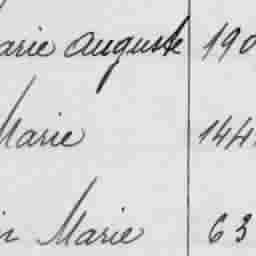 arie Auguste 190
Marie 144
Marie 63